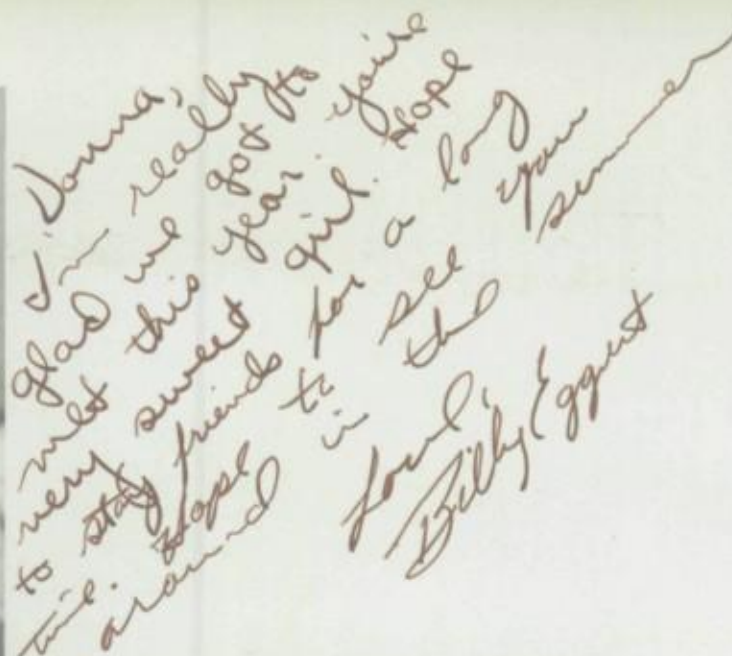 Donna,
I'm really
glad we got to
met this year. you're
very sweet girl. Hope
to stay friends for a long
time. Hope to see you
around in the summer
Love,
Billy Eggert